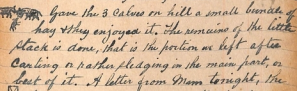 Gave the 3 Calves on hill a small bundle of
hay & they enjoyed it. The remains of the little
stack is done, that is the portion we left after
carting or rather sledging in the main part, or
best of it. A letter from Mum tonight, the